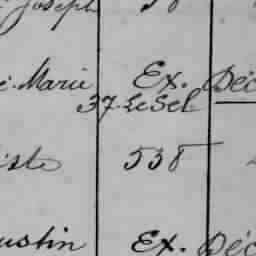 Joseph 58
e Marie Ex. Déc
37 Le Sel
iste 538
ustin Ex. Déc